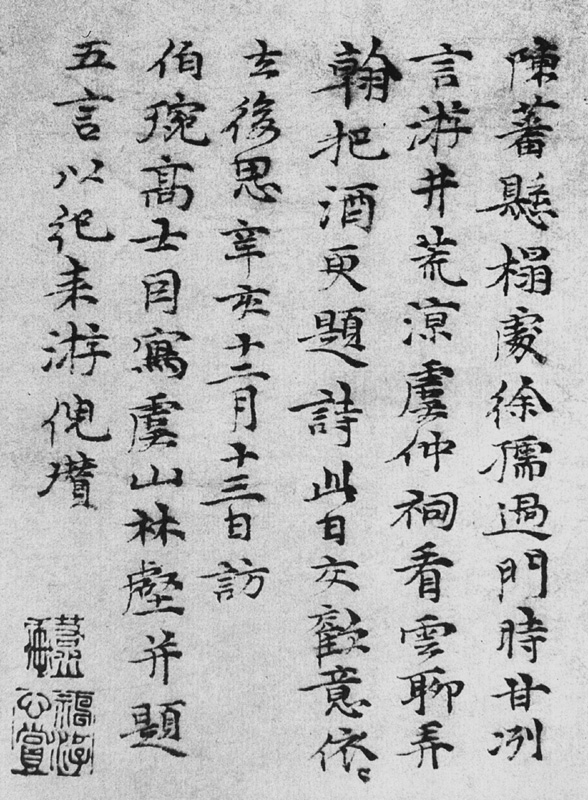 陳蕃懸榻處徐孺過門時甘冽
言游井荒涼虞仲祠看雲聊弄
翰把酒更題詩此日交歡意依〻
去後思辛亥十二月十三日訪
伯琬高士因寫虞山林壑并題
五言以紀來游倪瓚